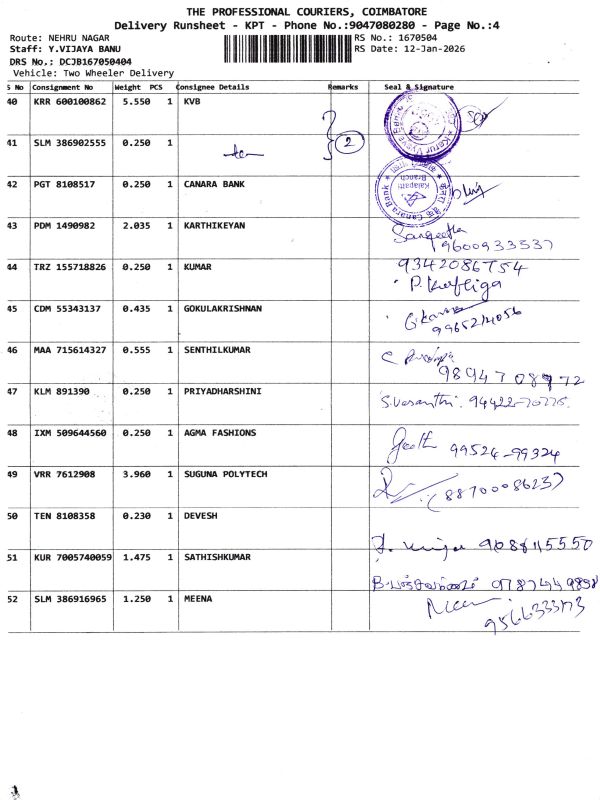 THE PROFESSIONAL COURIERS, COIMBATORE
Delivery Runsheet - KPT - Phone No.:9047080280 - Page No.:4
Route: NEHRU NAGAR RS No.: 1670504
Staff: Y.VIJAYA BANU RS Date: 12-Jan-2026
DRS No,: DCJB167050404
Vehicle: Two Wheeler Delivery
S No Consignment No Weight PCS Consignee Details Remarks Seal & Signature
40 KRR 600100862 5.550 1 KVB
41 SLM 386902555 0.250 1 2
42 PGT 8108517 0.250 1 CANARA BANK Canara Bank Kalapatti Branch
43 PDM 1490982 2.035 1 KARTHIKEYAN Sangeetha
9600933537
44 TRZ 155718826 0.250 1 KUMAR 9342086754
45 CDM 55343137 0.435 1 GOKULAKRISHNAN
46 MAA 715614327 0.555 1 SENTHILKUMAR
9894708972
47 KLM 891390 0.250 1 PRIYADHARSHINI S.Vasanthi. 94422-70775.
48 IXM 509644560 0.250 1 AGMA FASHIONS Geetha 99524-99324
49 VRR 7612908 3.960 1 SUGUNA POLYTECH (8870008623)
50 TEN 8108358 0.230 1 DEVESH
9088115550
51 KUR 7005740059 1.475 1 SATHISHKUMAR
52 SLM 386916965 1.250 1 MEENA